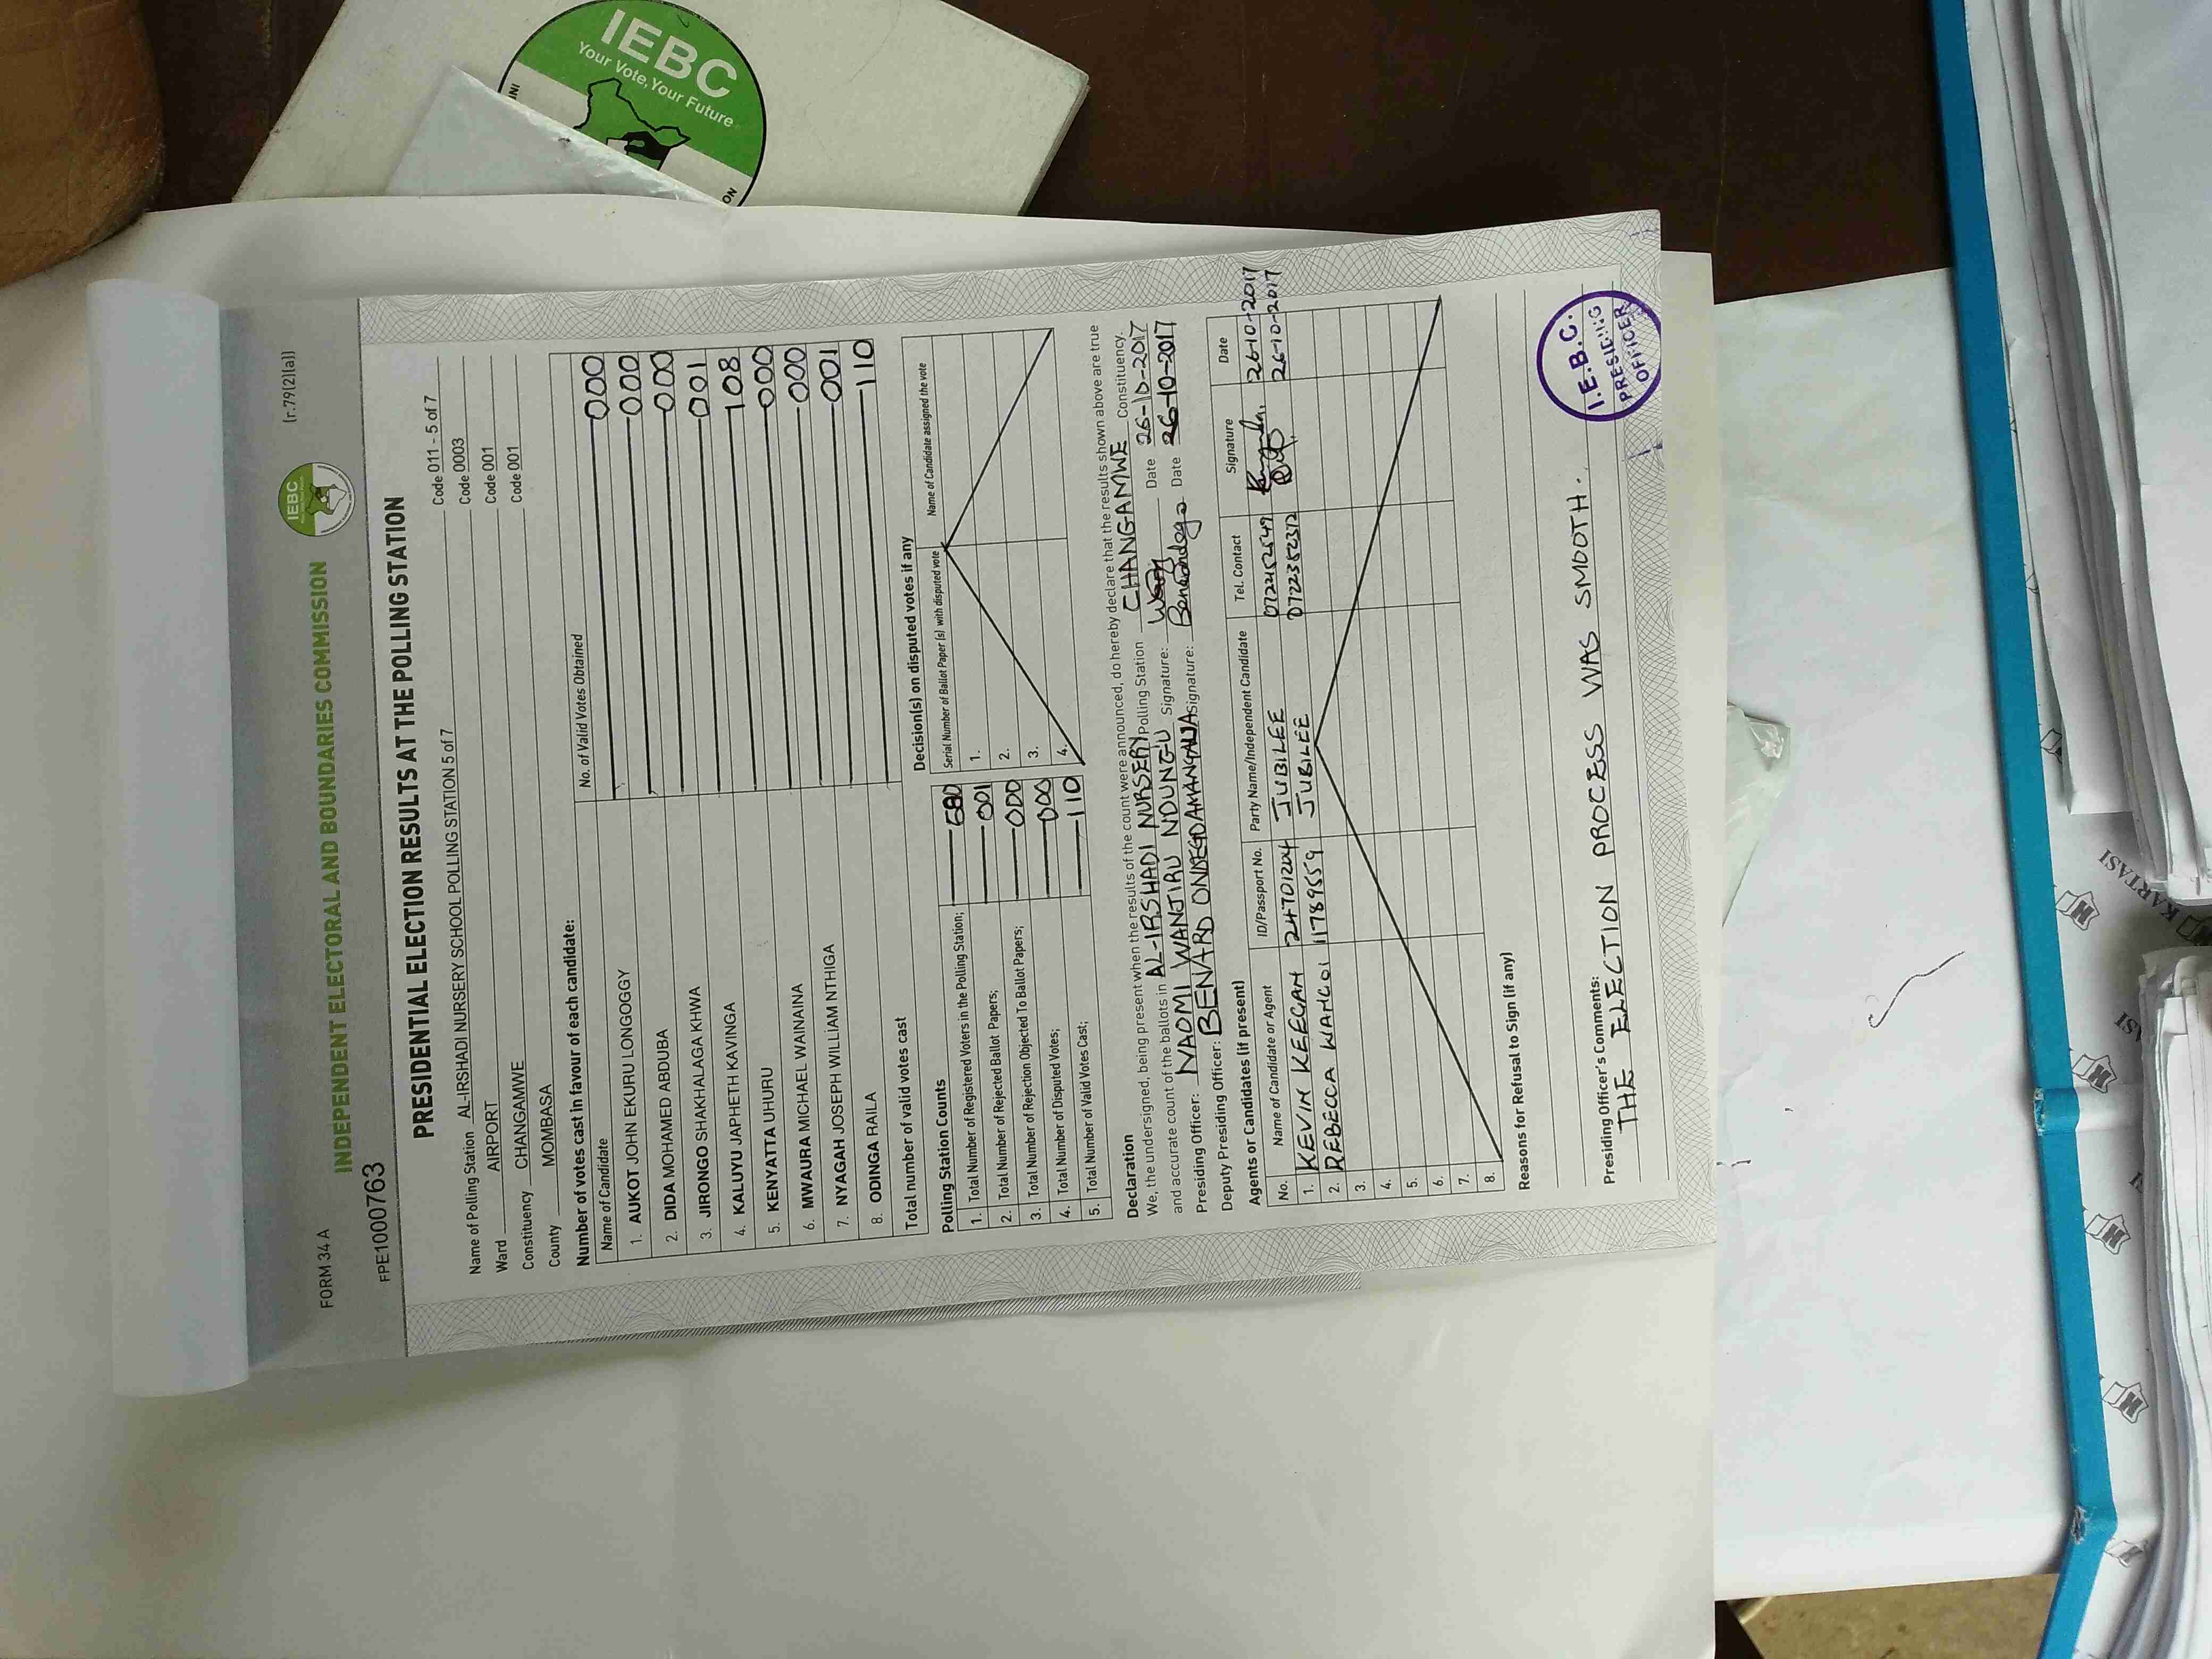 IEBC
Your Vote, Your Future
FORM 34 A
INDEPENDENT ELECTORAL AND BOUNDARIES COMMISSION
IEBC
(r.79(2)(a))
FPE1000763
PRESIDENTIAL ELECTION RESULTS AT THE POLLING STATION
Name of Polling Station AL-IRSHADI NURSERY SCHOOL POLLING STATION 5 of 7 Code 011 - 5 of 7
Ward AIRPORT Code 0003
Constituency CHANGAMWE Code 001
County MOMBASA Code 001
Number of votes cast in favour of each candidate:
Name of Candidate No. of Valid Votes Obtained
1. AUKOT JOHN EKURU LONGOGGY 000
2. DIDA MOHAMED ABDUBA 000
3. JIRONGO SHAKHALAGA KHWA 000
4. KALUYU JAPHETH KAVINGA 001
5. KENYATTA UHURU 108
6. MWAURA MICHAEL WAINAINA 000
7. NYAGAH JOSEPH WILLIAM NTHIGA 000
8. ODINGA RAILA 001
Total number of valid votes cast 110
Polling Station Counts
1. Total Number of Registered Voters in the Polling Station; 680
2. Total Number of Rejected Ballot Papers; 001
3. Total Number of Rejection Objected To Ballot Papers; 000
4. Total Number of Disputed Votes; 000
5. Total Number of Valid Votes Cast; 110
Decision(s) on disputed votes if any
Serial Number of Ballot Paper (s) with disputed vote Name of Candidate assigned the vote
1.
2.
3.
4.
Declaration
We, the undersigned, being present when the results of the count were announced, do hereby declare that the results shown above are true
and accurate count of the ballots in AL-IRSHADI NURSERY Polling Station CHANGAMWE Constituency.
Presiding Officer: NAOMI WANJIRU NDUNGU Signature: Date 26-10-2017
Deputy Presiding Officer: BENARD Signature: Date 26-10-2017
Agents or Candidates (if present)
No. Name of Candidate or Agent ID/Passport No. Party Name/Independent Candidate Tel. Contact Signature Date
1. KEVIN KEEGAN 24701204 JUBILEE 0722452549 26-10-2017
2. REBECCA 11789559 JUBILEE 0722352312 26-10-2017
3.
4.
5.
6.
7.
8.
Reasons for Refusal to Sign (if any)
Presiding Officer's Comments:
THE ELECTION PROCESS WAS SMOOTH.
I.E.B.C.
PRESIDING
OFFICER
KARTASI